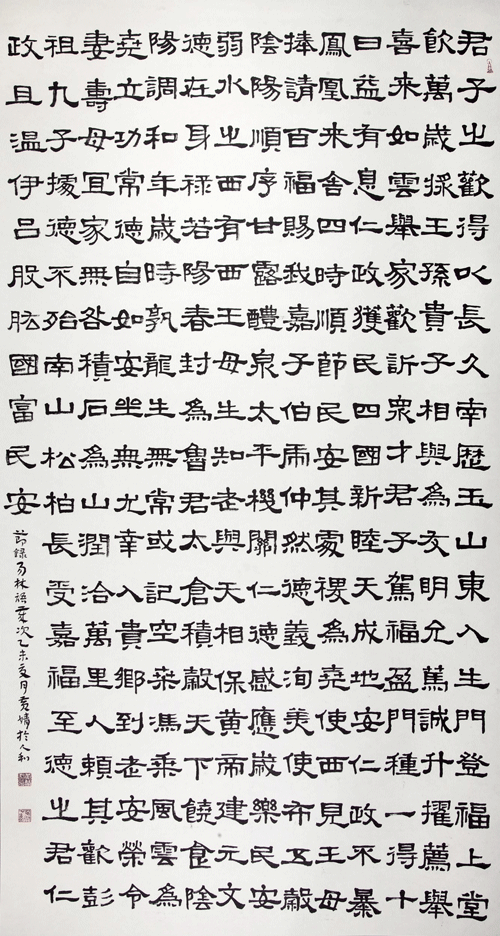 君子之歡得以長久南歷玉山東入生門登福上堂
飲萬歲採王孫貴子相與為友明允篤誠升擢薦舉
喜來如雲舉家歡訢衆才君子駕福盈門種一得十
曰益有息仁政獲民四國新睦天成地安仁政不暴
鳳凰來舍四時順節民安其處稷為堯使西見王母
捧請百福賜我嘉子伯雨仲然德義洵美使布五穀
陰陽順序甘露醴泉太平機關仁德感應歲樂民安
弱水之西有西王母生知老與天相保黃帝建元文
德在身祿若陽春封為魯君太倉積穀天下饒食陰
陽調和年歲時孰龍生無常或記空桒馮乘風雲為
堯立功常德自如安坐無尤幸入貴鄉到老安榮令
妻壽母宜家無咎積石為山潤洽萬里人賴其歡彭
祖九子據德不殆南山松柏長受嘉福至德之君仁
政且溫伊呂股肱國富民安
節錄易林語歲次乙未夏月於人和